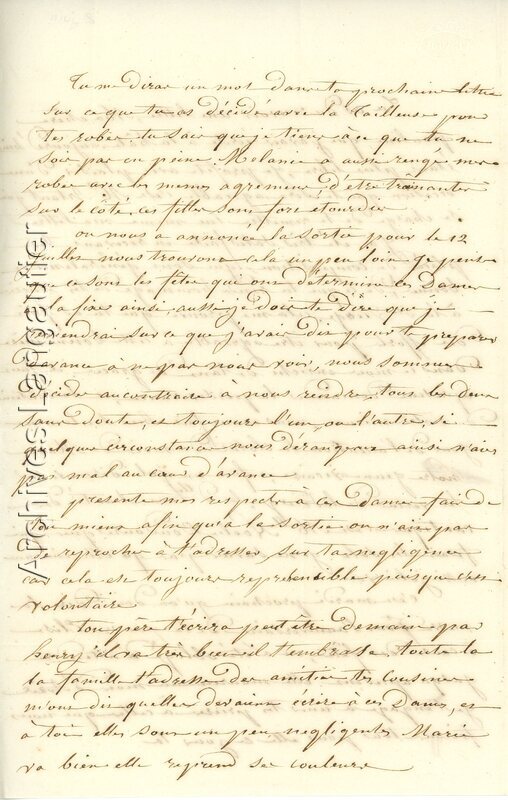 Tu me diras un mot dans ta prochaine lettre
sur ce que tu as décidé avec la Tailleuse pour
tes robes. tu sais que je tiens à ce que tu ne
sois pas en peine. Melanie a aussi rengé mes
robes avec les memes agremens, d'etre trainantes
sur le côté. ces filles sont fort étourdies
on nous a annoncé la sortie pour le 12
juillet nous trouvons cela un peu loin je pense
que ce sont les fêtes qui ont déterminé ces Dames
à la fixer ainsi, aussi je dois te dire que je
reviendrai sur ce que j'avais dis pour te preparer
d'avance à ne pas nous voir, nous sommes
décidé au contraire à nous rendre, tous les deux
sans doute, et toujours l'un, ou l'autre, si
quelque circonstance nous dérangerez ainsi n'aies
pas mal au cœur d'avance
présente mes respects à ces Dames fais de
ton mieux afin qu'a la sortie on n'ai pas
reproches à t'adresser, sur ta negligence
car cela est toujours reprehensible puisque c'est
volontaire
ton pere t'écrira peut être demain par
henry il va très bien il t'embrasse, toute la
la famille t'adresse des amitiés tes cousines
m'ont dis quelles devaient écrire à ces Dames, et
à toi elles sont un peu negligentes Marie
va bien elle reprend ses couleurs
Archives-Lsevihcra